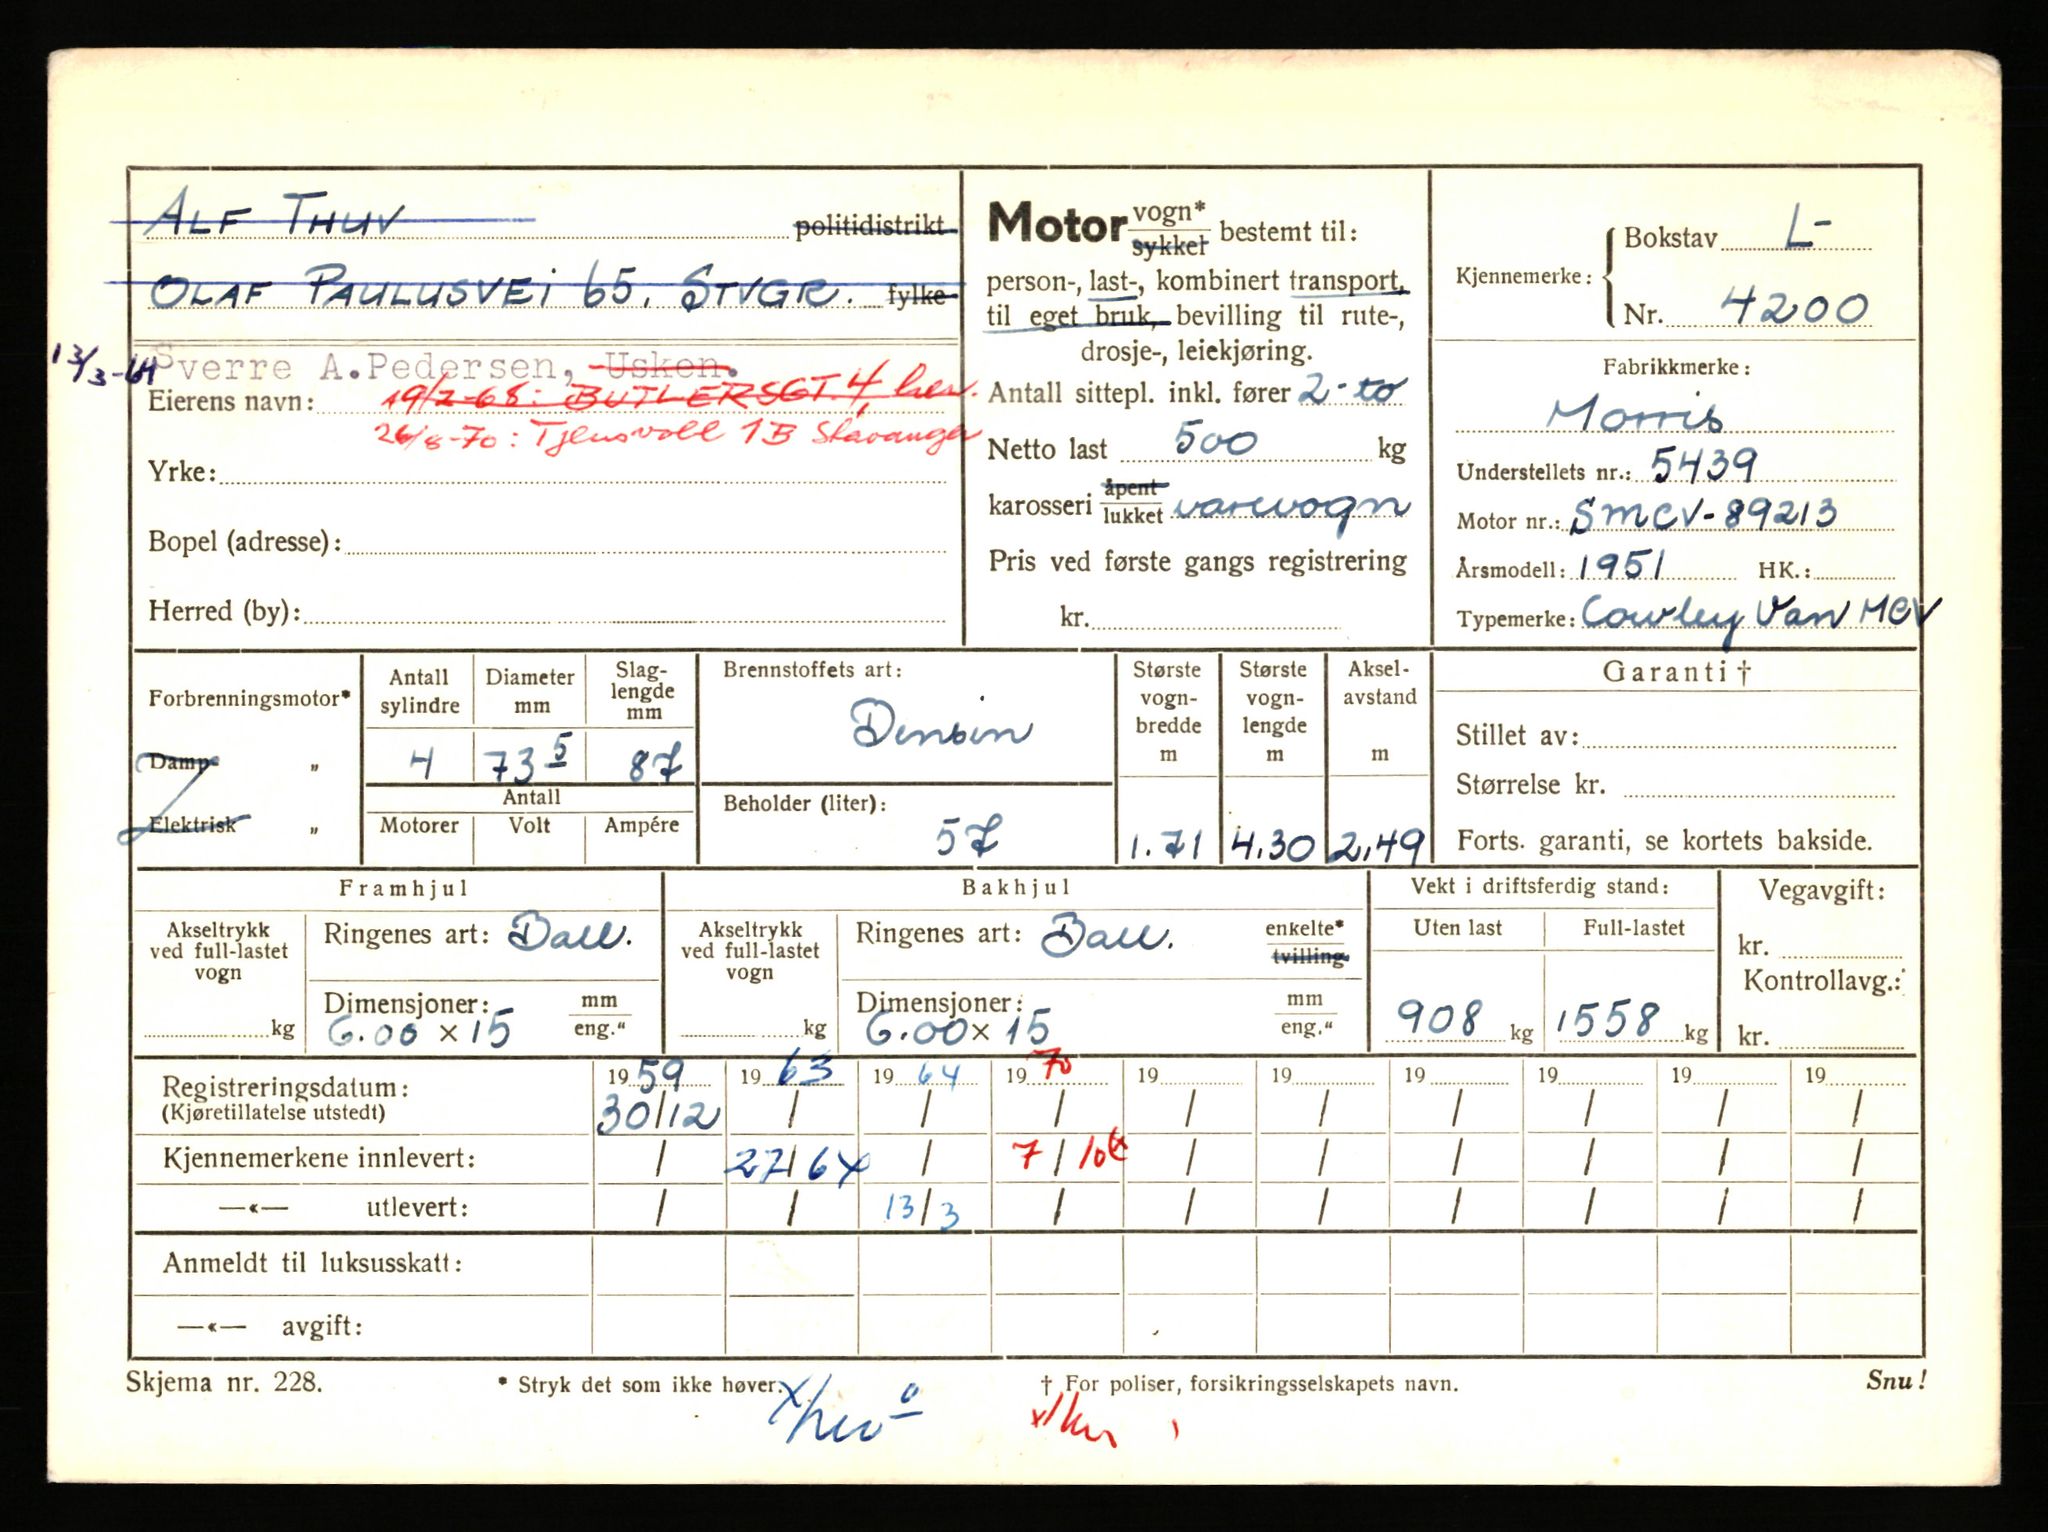 ALF THUV politidistrikt
OLAF PAULUSVEI 65, STVGR. fylke
13/3-64 Sverre A. Pedersen, Usken.
Eierens navn: 19/2-68: BUTLERSGT. 4, her.
26/8-70: Tjensvoll 1B Stavanger
Yrke:
Bopel (adresse):
Herred (by):
Motor vogn* sykkel bestemt til:
person-, last-, kombinert transport,
til eget bruk, bevilling til rute-,
drosje-, leiekjøring.
Antall sittepl. inkl. fører 2-to
Netto last 500 kg
karosseri åpent lukket varevogn
Pris ved første gangs registrering
kr.
Kjennemerke: Bokstav L-
Nr. 4200
Fabrikkmerke:
Morris
Understellets nr.: 5439
Motor nr.: SMCV-89213
Årsmodell: 1951 HK.:
Typemerke: Cowley Van MCV
Forbrenningsmotor*
Damp- „
Elektrisk „
Antall sylindre 4
Diameter mm 73 5
Slag-lengde mm 87
Antall
Motorer Volt Ampére
Brennstoffets art:
Bensin
Beholder (liter):
57
Største vogn-bredde m 1.71
Største vogn-lengde m 4.30
Aksel-avstand m 2,49
Garanti †
Stillet av:
Størrelse kr.
Forts. garanti, se kortets bakside.
Framhjul
Akseltrykk ved full-lastet vogn
kg
Ringenes art: Ball.
Dimensjoner: mm eng."
6.00 × 15
Bakhjul
Akseltrykk ved full-lastet vogn
kg
Ringenes art: Ball. enkelte* tvilling
Dimensjoner: mm eng."
6.00 × 15
Vekt i driftsferdig stand:
Uten last Full-lastet
908 kg 1558 kg
Vegavgift:
kr.
Kontrollavg.:
kr.
Registreringsdatum: 19 59 19 63 19 64 19 70 19 19 19 19 19 19
(Kjøretillatelse utstedt) 30/12 / / / / / / / / /
Kjennemerkene innlevert: / 27/6 x / 7/10 x / / / / / /
—«— utlevert: / / 13/3 / / / / / / /
Anmeldt til luksusskatt:
—«— avgift:
Skjema nr. 228. * Stryk det som ikke høver. † For poliser, forsikringsselskapets navn. Snu!